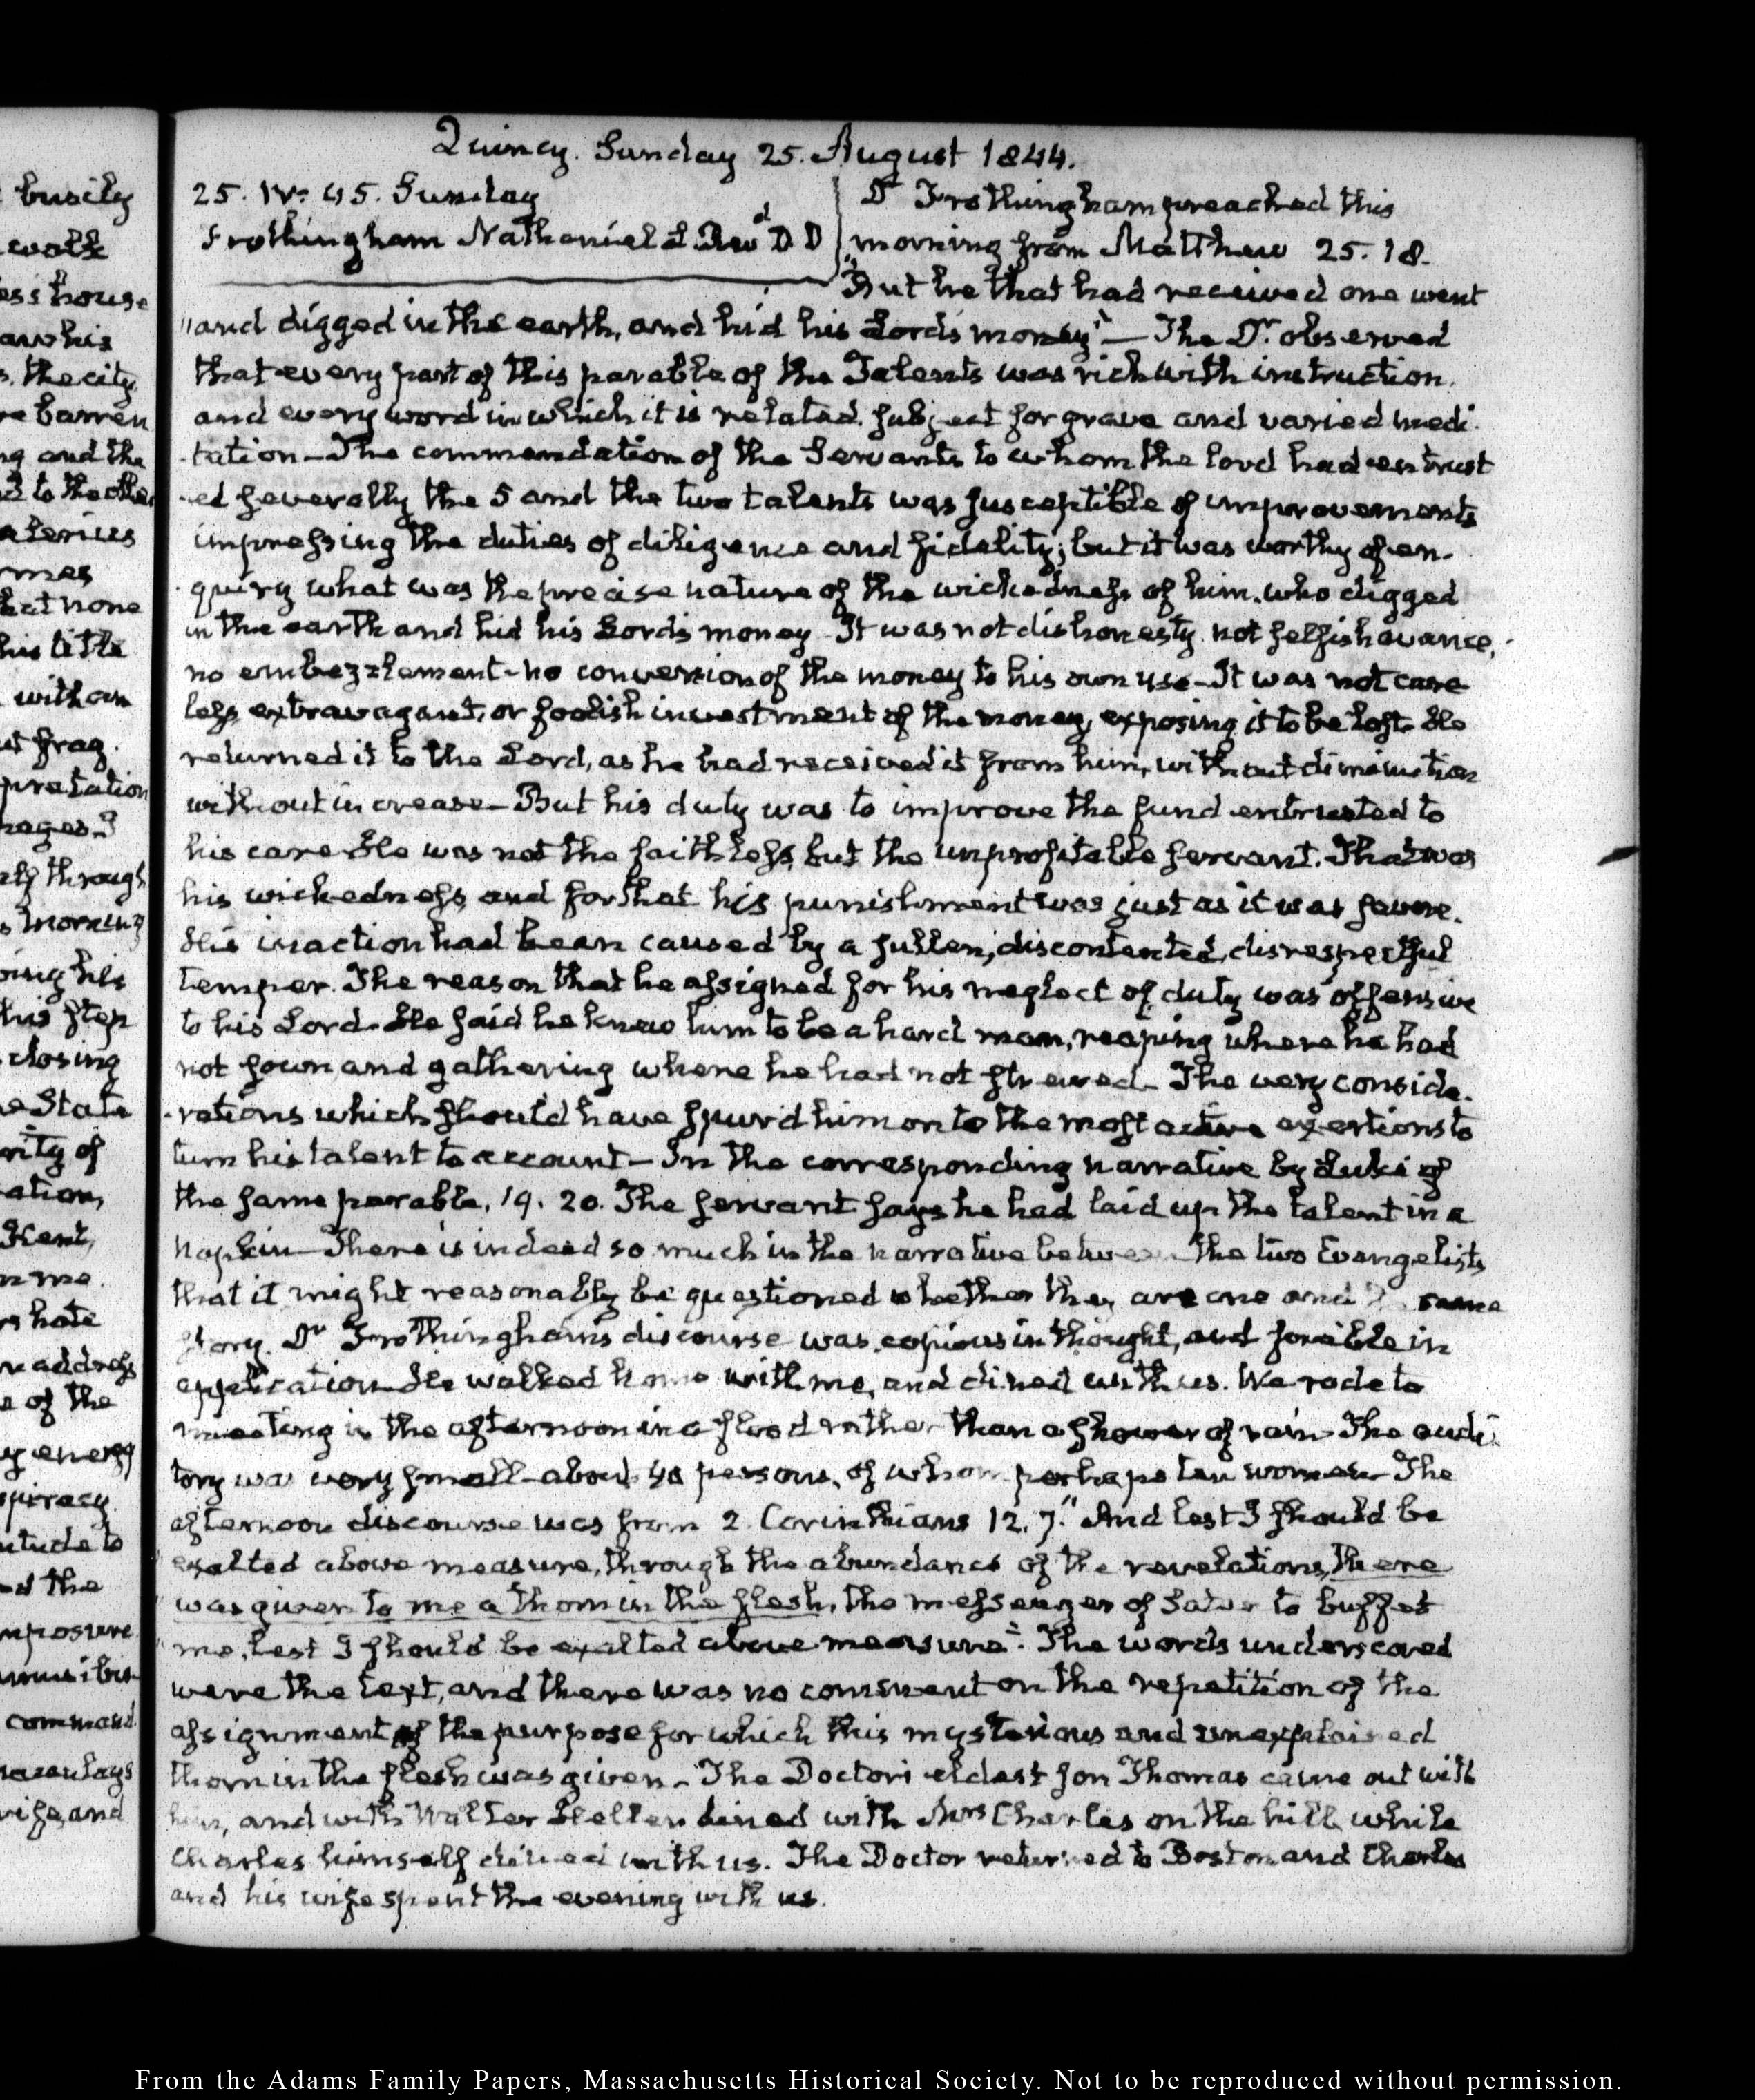 Quincy. Sunday 25. August 1844.
25. IV: 45. Sunday
Frothingham Nathaniel L Revd D D
Dr Frothingham preached this
morning from Matthew 25. 18.
"But he that had received one went
"and digged in the earth, and hid his Lord's money" — The Dr. observed
that every part of this parable of the Talents was rich with instruction.
and every word in which it is related. subject for grave and varied medi-
-tation — The commendation of the Servants to whom the lord had entrust
-ed severally the 5 and the two talents was susceptible of improvements
impressing the duties of diligence and fidelity; but it was worthy of en-
-quiry what was the precise nature of the wickedness of him who digged
in the earth and hid his Lord's money - It was not dishonesty. not selfish avarice,
no embezzlement - no conversion of the money to his own use - It was not care
less extravagant, or foolish investment of the money, exposing it to be lost. He
returned it to the Lord, as he had received it from him, without diminution
without increase — But his duty was to improve the fund entrusted to
his care He was not the faithless, but the unprofitable servant. That was
his wickedness, and for that his punishment was just as it was severe.
His inaction had been caused by a sullen, discontented, disrespectful
temper. The reason that he assigned for his neglect of duty was offensive
to his Lord. He said he knew him to be a hard man, reaping where he had
not sown and gathering where he had not strewed - The very conside-
-rations which should have spurr'd him on to the most active exertions to
turn his talent to account — In the corresponding narrative by Luke of
the same parable, 19. 20. The servant says he had laid up the talent in a
napkin — There is indeed so much in the narrative between the two Evangelists
that it might reasonably be questioned whether they are one and same
story. Dr Frothingham's discourse was copious in thought, and forcible in
application - He walked home with me, and dined with us. We rode to
meeting in the afternoon in a flood rather than a shower of rain - The audi-
tory was very small - about 40 persons, of whom perhaps ten women - The
afternoon discourse was from 2. Corinthians 12. 7. "And lest I should be
exalted above measure, through the abundance of the revelations, there
"was given to me a thorn in the flesh, the messenger of Satan to buffet
"me, lest I should be exalted above measure". The words underscored
were the text, and there was no comment on the repetition of the
assignment of the purpose for which this mysterious and unexplained
thorn in the flesh was given - The Doctor's eldest son Thomas came out with
him, and with Walter Hellen dined with Mrs Charles on the hill, while
Charles himself dined with us. The Doctor returned to Boston and Charles
and his wife spent the evening with us.
busily
walk
ess house
aw his
s. the city
re barren
ng and the
to the other
mes
hat none
his little
with an
ut frag.
pretation
rages
through
s morning
oing his
his step
closing
e State
rity of
ation,
Kent,
n me.
rs hate
n address
e of the
y energy
spiracy
itude to
d the
mposure
command
rife, and
From the Adams Family Papers, Massachusetts Historical Society. Not to be reproduced without permission.